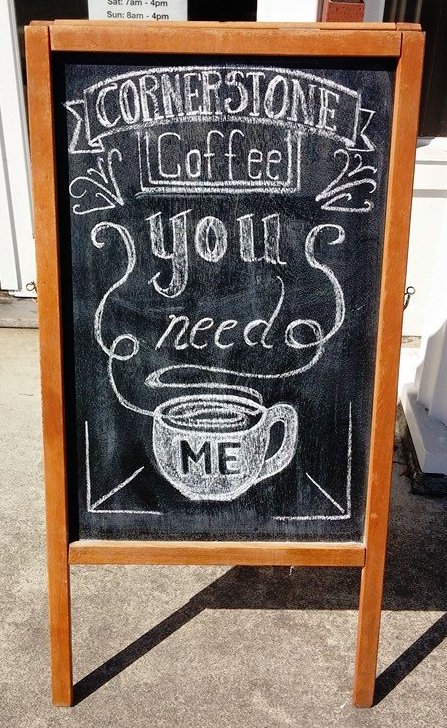 Sat: 7am - 4pm
Sun: 8am - 4pm
CORNERSTONE
Coffee
you
need
ME